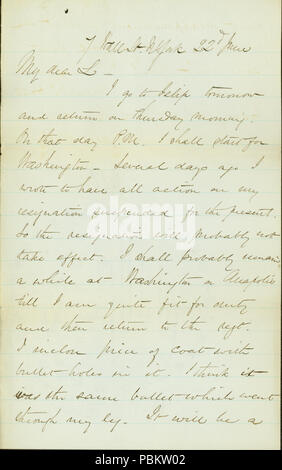 7 Wall St N York 22d June
My dear L -
I go to Islip tomorrow
and return on Thursday morning.
On that day P.M. I shall start for
Washington - Several days ago I
wrote to have all action on my
resignation suspended for the present.
So the resignation will probably not
take effect. I shall probably remain
a while at Washington or Anapolis
till I am quite fit for duty
and then return to the regt.
I inclose piece of coat with
bullet holes in it. I think it
was the same bullet which went
through my leg. It will be a
alamy
alamy
Image ID: PBKW02
www.alamy.com